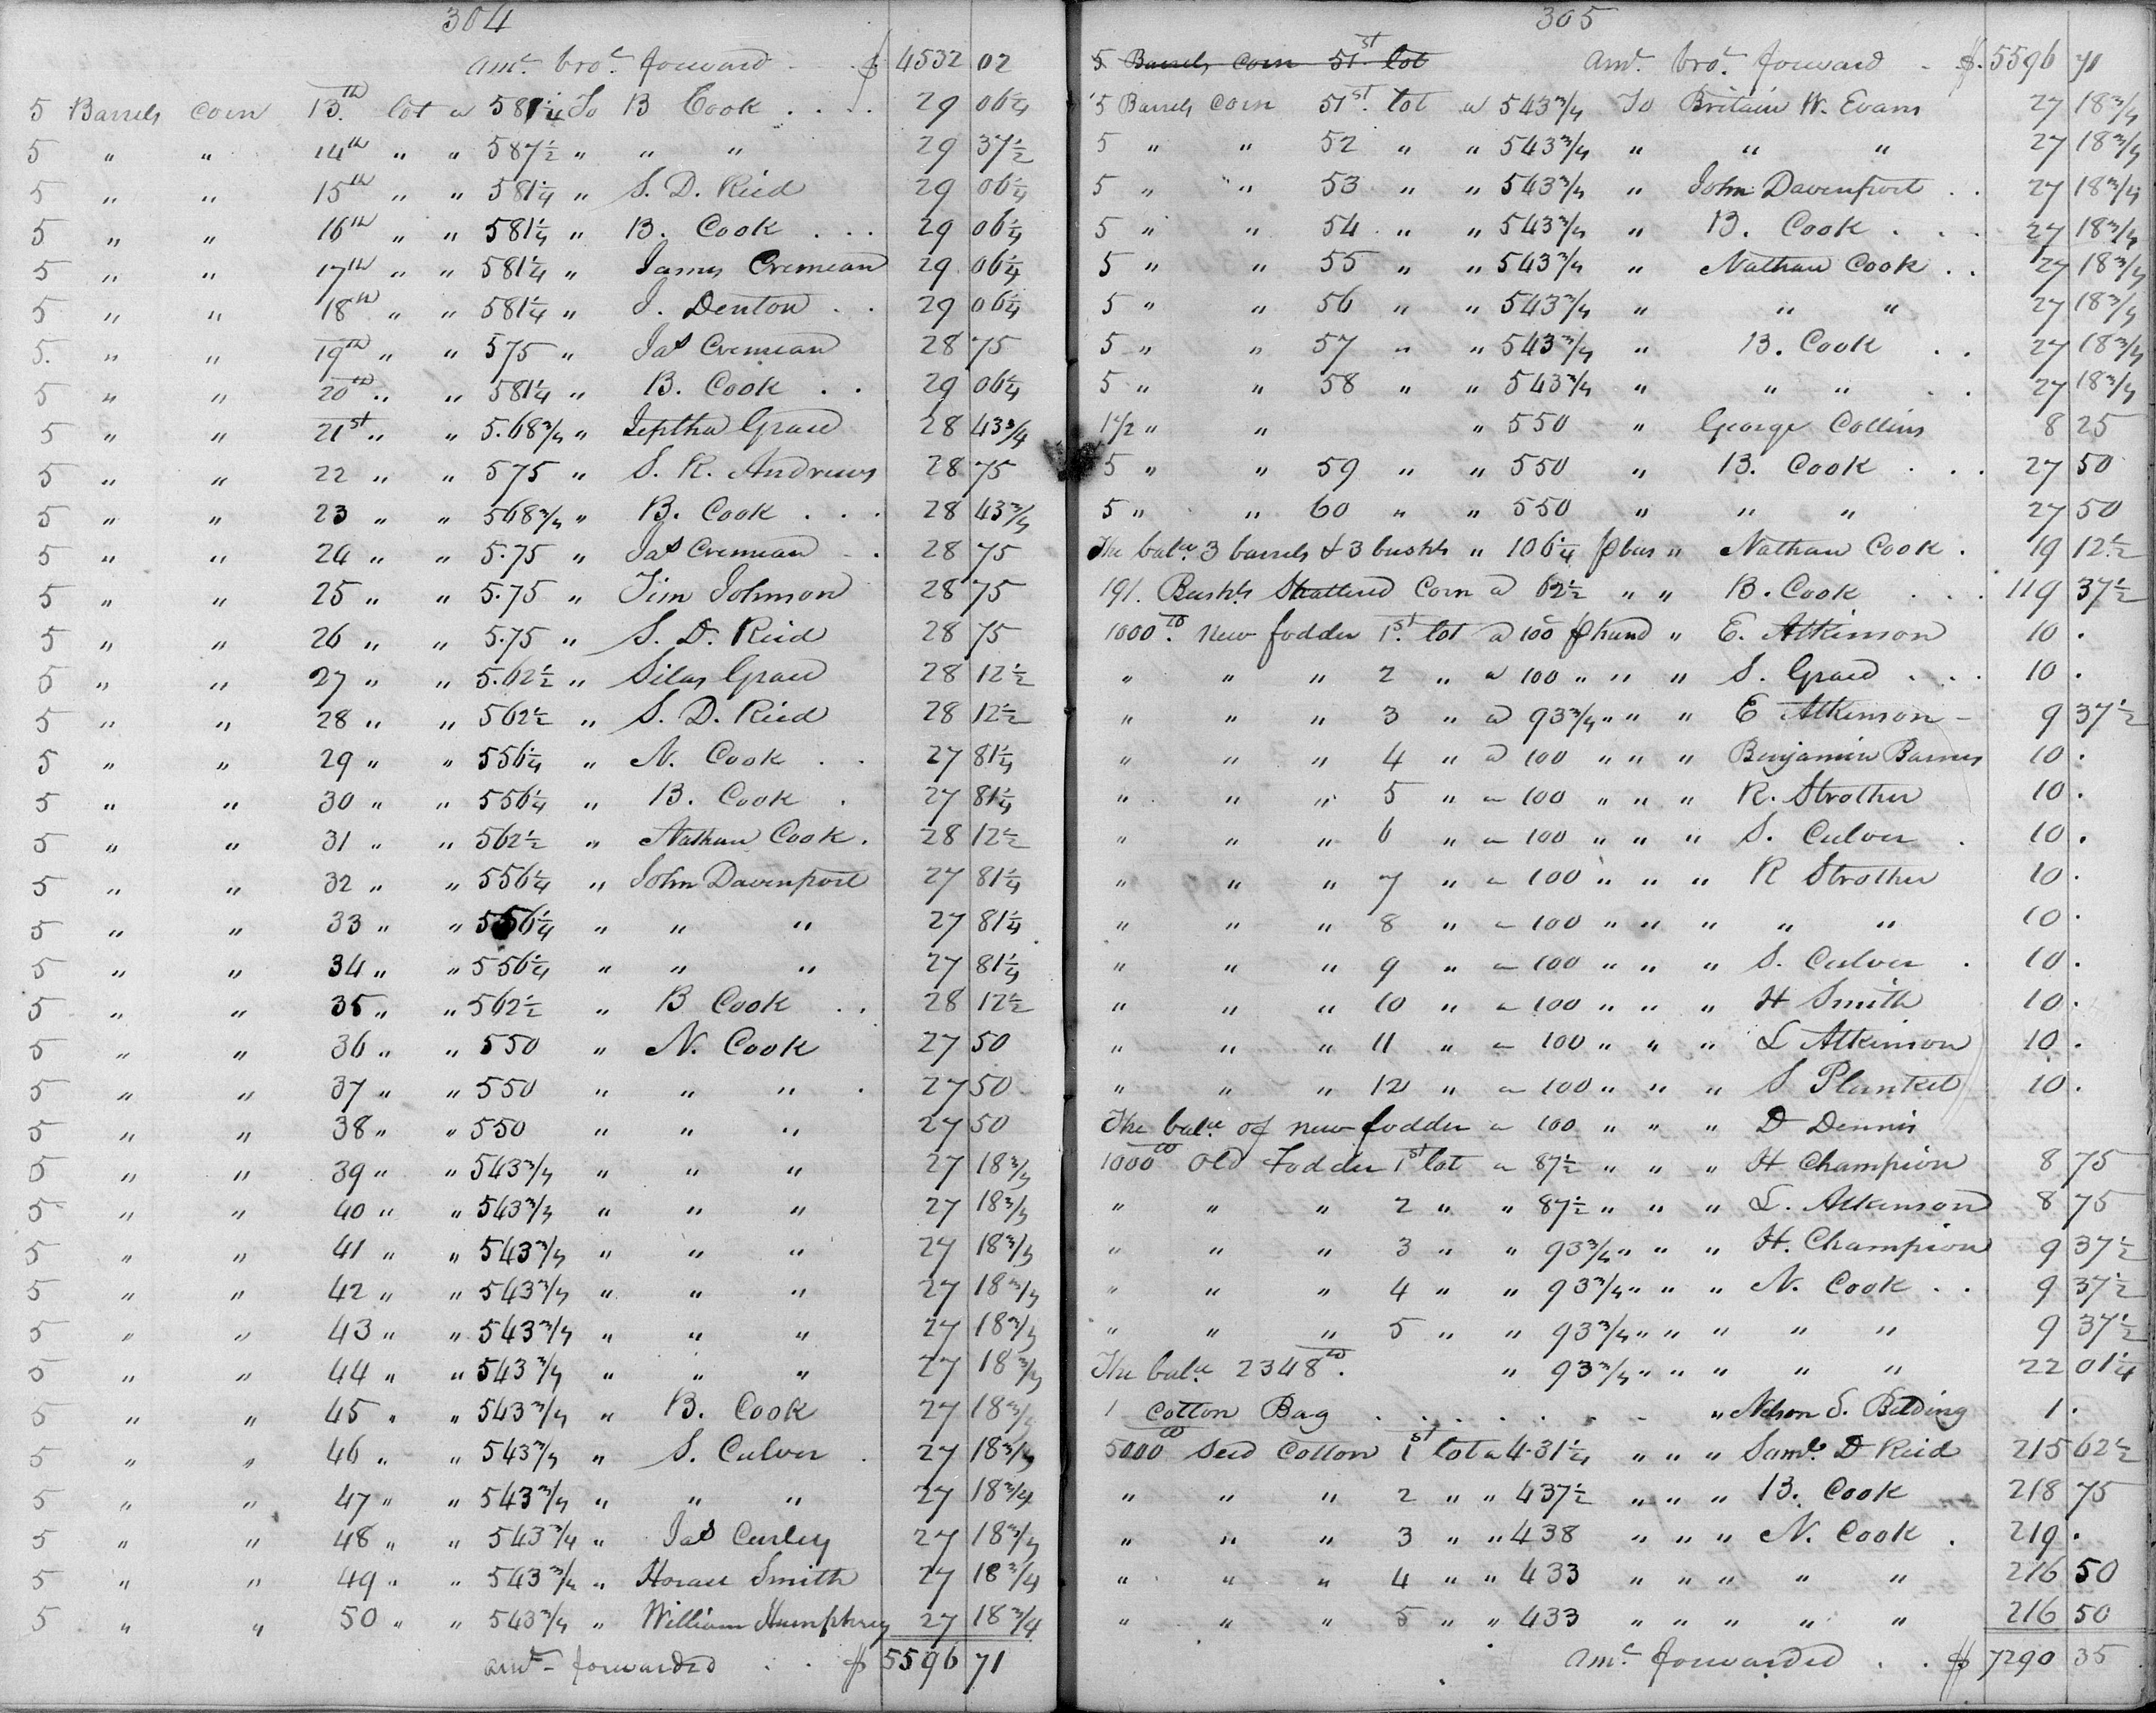 304
amt. brot. forward - $ 4532 02
5 Barrels corn 13th. lot a 581¼ To B Cook . . . . 29 06¼
5 " " 14th " " 587½ " " " 29 37½
5 " " 15th " " 581¼ " S. D. Reid 29 06¼
5 " " 16th " " 581¼ " B. Cook . . . 29 06¼
5 " " 17th " " 581¼ " James Cremean 29 06¼
5 " " 18th " " 581¼ " J. Denton . . 29 06¼
5. " " 19th " " 575 " Jas Cremean 28 75
5 " " 20th " " 581¼ " B. Cook . . 29 06¼
5 " " 21st " " 5.68¾ " Jeptha Grace 28 43¾
5 " " 22 " " 575 " S. R. Andrews 28 75
5 " " 23 " " 568¾ " B. Cook . . . 28 43¾
5 " " 24 " " 5.75 " Jas Cremean - . 28 75
5 " " 25 " " 5.75 " Tim Johnson 28 75
5 " " 26 " " 5.75 " S. D. Reid 28 75
5 " " 27 " " 5.62½ " Silas Grace 28 12½
5 " " 28 " " 562½ " S. D. Reid 28 12½
5 " " 29 " " 556¼ " N. Cook . . 27 81¼
5 " " 30 " " 556¼ " B. Cook . 27 81¼
5 " " 31 " " 562½ " Nathan Cook . 28 12½
5 " " 32 " " 556¼ " John Davenport 27 81¼
5 " " 33 " " 556¼ " " " 27 81¼
5 " " 34 " " 556¼ " " " 27 81¼
5 " " 35 " " 562½ " B Cook . . 28 12½
5 " " 36 " " 550 " N. Cook 27 50
5 " " 37 " " 550 " " " . 27 50
5 " " 38 " " 550 " " " 27 50
5 " " 39 " " 543¾ " " " 27 18¾
5 " " 40 " " 543¾ " " " 27 18¾
5 " " 41 " " 543¾ " " " 27 18¾
5 " " 42 " " 543¾ " " " 27 18¾
5 " " 43 " " 543¾ " " " 27 18¾
5 " " 44 " " 543¾ " " " 27 18¾
5 " " 45 " " 543¾ " B. Cook 27 18¾
5 " " 46 " " 543¾ " S. Culver . 27 18¾
5 " " 47 " " 543¾ " " " 27 18¾
5 " " 48 " " 543¾ " Jas Curley 27 18¾
5 " " 49 " " 543¾ " Horace Smith 27 18¾
5 " " 50 " " 543¾ " William Humphrey 27 18¾
amt - forwarded . . $ 5596 71
305
5 Barrels corn 51st. lot amt. brot. forward - $. 5596 71
5 Barrels corn 51st. lot a 543¾ To Britain W. Evans 27 18¾
5 " " 52 " " 543¾ " " " 27 18¾
5 " " 53 " " 543¾ " John Davenport . . 27 18¾
5 " " 54 " " 543¾ " B. Cook . . . 27 18¾
5 " " 55 " " 543¾ " Nathan Cook . . 27 18¾
5 " " 56 " " 543¾ " " " 27 18¾
5 " " 57 " " 543¾ " B. Cook . . 27 18¾
5 " " 58 " " 543¾ " " " . . 27 18¾
1½ " " " 550 " George Collins 8 25
5 " " 59 " " 550 " B. Cook . . . 27 50
5 " " 60 " " 550 " " " 27 50
The balce 3 barrels & 3 bushls " 106¼ ⅌ bus " Nathan Cook . 19 12½
191. Bushls Shattered Corn a 62½ " " B. Cook . . . 119 37½
1000 lb. new fodder 1st. lot a 100 ⅌ hund " E. Atkinson 10 .
" " " 2 " a 100 " " " S. Grace . . . 10 .
" " " 3 " a 93¾ " " " E Atkinson - 9 37½
" " " 4 " a 100 " " " Benjamin Barnes 10 .
" " " 5 " a 100 " " " R. Strother 10 .
" " " 6 " a 100 " " " S. Culver . 10 .
" " " 7 " a 100 " " " R Strother 10 .
" " " 8 " a 100 " " " " " 10 .
" " " 9 " a 100 " " " S. Culver . 10 .
" " " 10 " a 100 " " " H Smith 10 .
" " " 11 " a 100 " " " L Atkinson 10 .
" " " 12 " a 100 " " " S Planket 10 .
The balce of new fodder a 100 " " " D Dennis
1000 lb Old Fodder 1st lot a 87½ " " " H Champion 8 75
" " " 2 " " 87½ " " " L. Atkinson 8 75
" " " 3 " " 93¾ " " " H. Champion 9 37½
" " " 4 " " 93¾ " " " N. Cook . . 9 37½
" " " 5 " " 93¾ " " " " " 9 37½
The balce 2348 lb. " 93¾ " " " " " 22 01¼
1 Cotton Bag . . . . . . . - " Nelson S. Belding 1 .
5000 lb Seed Cotton 1st lot a 4.31¼ " " " Saml. D Reid 215 62½
" " " 2 " " 437½ " " " B. Cook 218 75
" " " 3 " " 438 " " " N. Cook . 219 .
" " " 4 " " 433 " " " " " 216 50
" " " 5 " " 433 " " " " " 216 50
amt. forwarded . . $ 7290 35